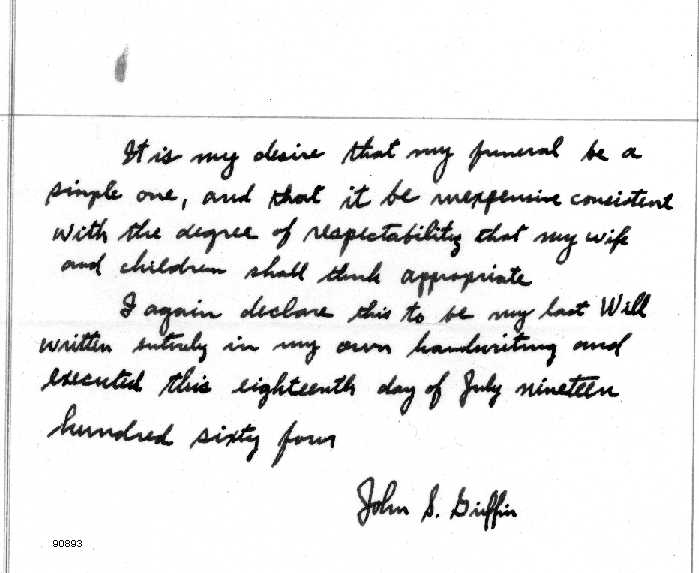 It is my desire that my funeral be a
simple one, and that it be inexpensive consistent
with the degree of respectability that my wife
and children shall think appropriate
I again declare this to be my last Will
written entirely in my own handwriting and
executed this eighteenth day of July nineteen
hundred sixty four
John S. Griffin
90893